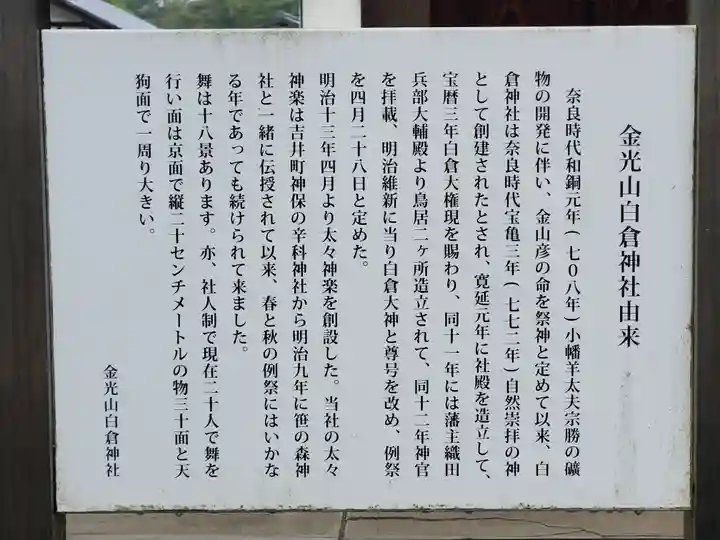 金光山白倉神社由来
奈良時代和銅元年(七〇八年)小幡羊太夫宗勝の礦
物の開発に伴い、金山彦の命を祭神と定めて以来、白
倉神社は奈良時代宝亀三年(七七二年)自然崇拝の神
として創建されたとされ、寛延元年に社殿を造立して、
宝暦三年白倉大権現を賜わり、同十一年には藩主織田
兵部大輔殿より鳥居二ヶ所造立されて、同十二年神官
を拝載、明治維新に当り白倉大神と尊号を改め、例祭
を四月二十八日と定めた。
明治十三年四月より太々神楽を創設した。当社の太々
神楽は吉井町神保の辛科神社から明治九年に笹の森神
社と一緒に伝授されて以来、春と秋の例祭にはいかな
る年であっても続けられて来ました。
舞は十八景あります。亦、社人制で現在二十人で舞を
行い面は京面で縦二十センチメートルの物三十面と天
狗面で一周り大きい。
金光山白倉神社